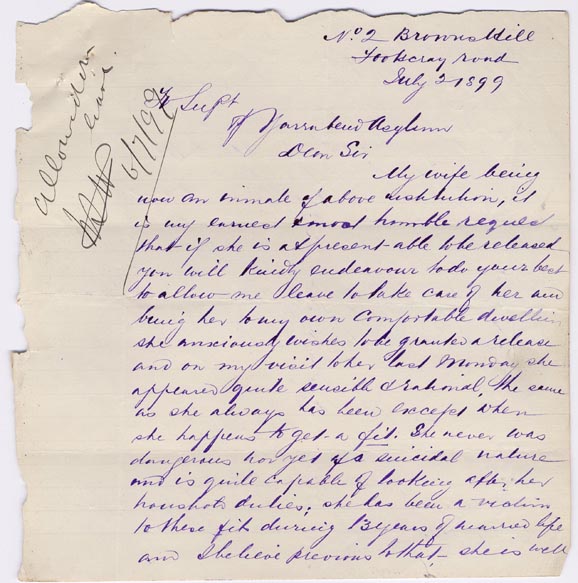 No 2 Browns Hill
Footscray road
July 2 1899
To Supt
of Yarrabend Asylum
Dear Sir
My wife being
now an inmate of above institution, it
is my earnest & most humble request
that if she is at present able to be released
you will kindly endeavour to do your best
to allow me leave to take care of her and
bring her to my own Comfortable dwelling
she anxiously wishes to be granted a release
and on my visit to her last Monday she
appeared quite sensible & rational, the same
as she always has been except when
she happens to get a fit. She never was
dangerous nor yet of a suicidal nature
and is quite capable of looking after her
houshold duties, she has been a victim
to these fits during 13 years of married life
and I believe previous to that she is well
Allowed on
leave
6/7/99